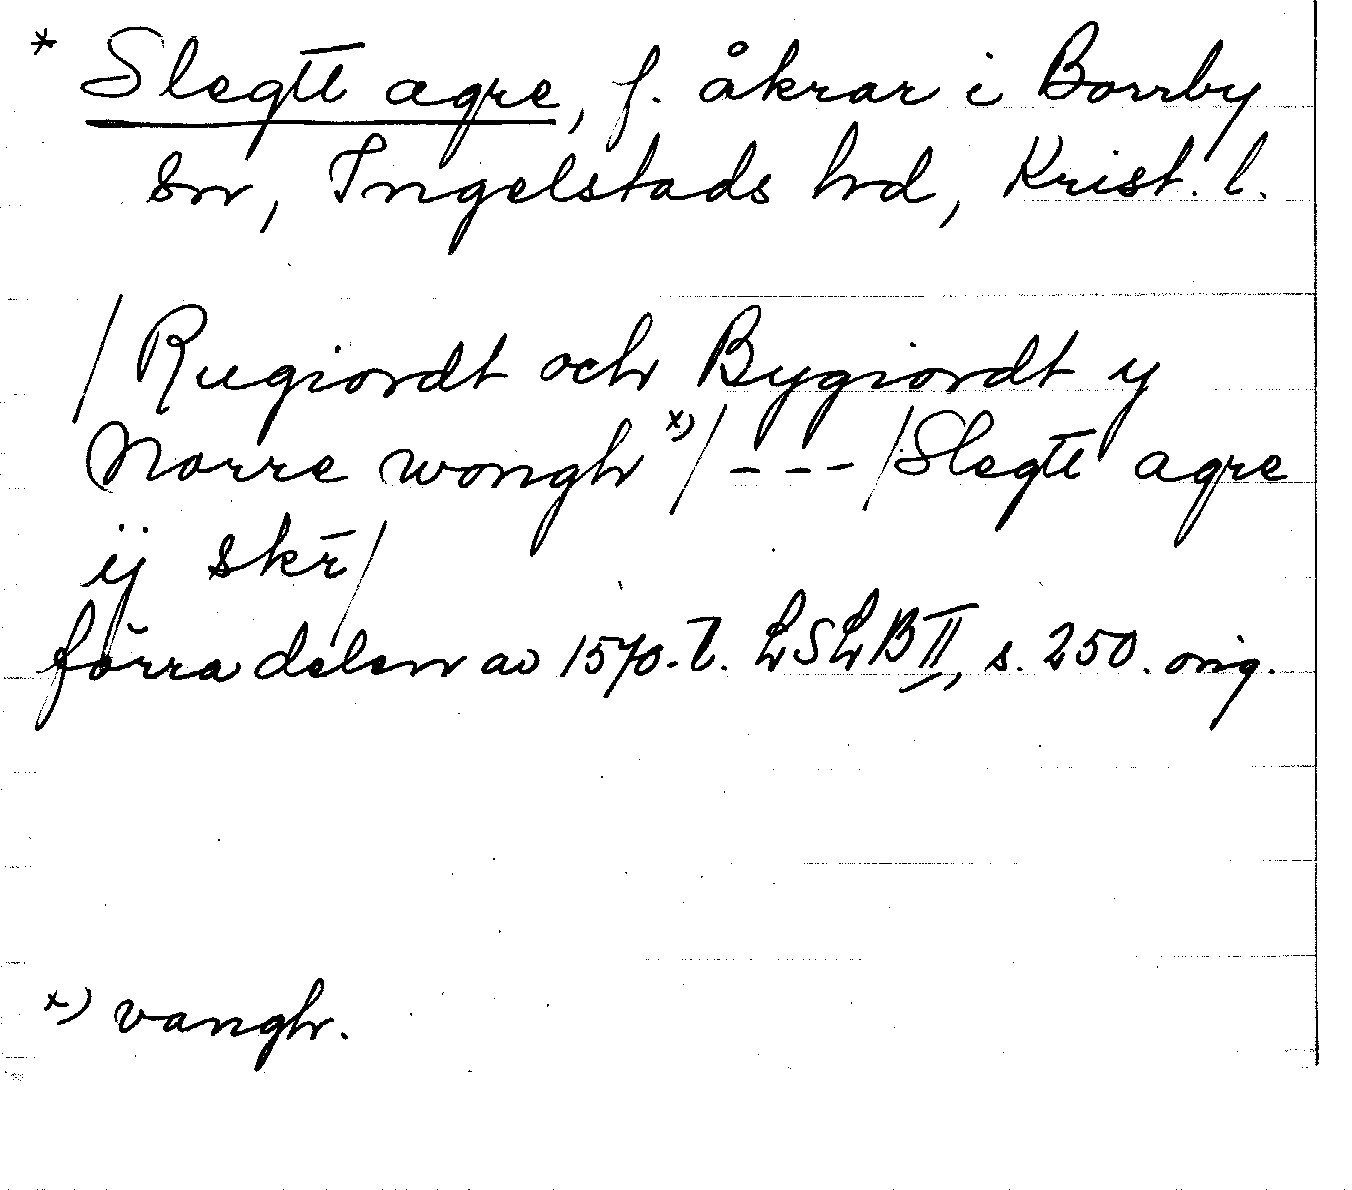 * Slegtt̄ agre, f. åkrar i Borrby
sn, Ingelstads hd, Krist. l.
/Rugiordt och Bygiordt y
Norre wongh x)/ - - - /Slegtt̄ agre
ij skr̄/
förra delen av 1570-t. LSLB II, s. 250. orig.
x) vangh.